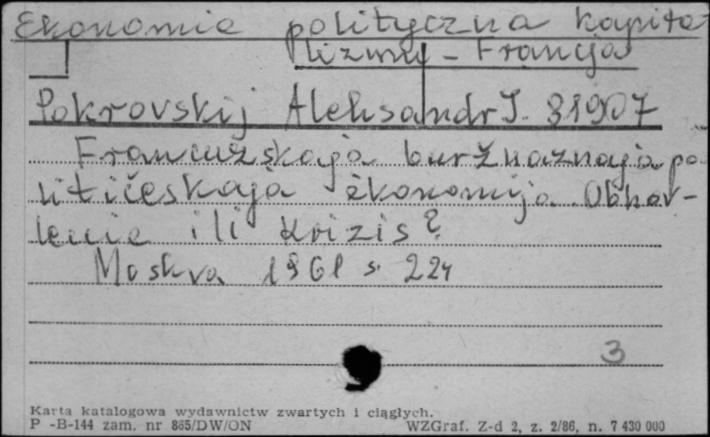 Ekonomia polityczna kapita-
lizmu - Francja
Pokrovskij Aleksandr I. 31907
Francuzskaja buržuaznaja po-
litičeskaja èkonomija. Obnov-
lenie ili krizis?
Moskva 1961 s. 224
3
Karta katalogowa wydawnictw zwartych i ciągłych.
P -B-144 zam. nr 865/DW/ON WZGraf. Z-d 2, z. 2/86, n. 7 430 000